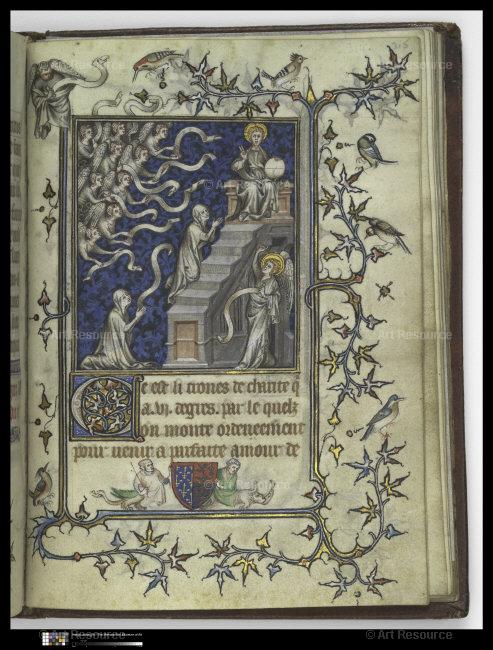 Ce est li trones de charite q
a .vj. degres. par le quelz
on monte ordeneement
pour uenir a parfaite amour de
© Art Resource
© Art Resource
© Art Resource
© Art Resource
© Art Resource
© Art Resource